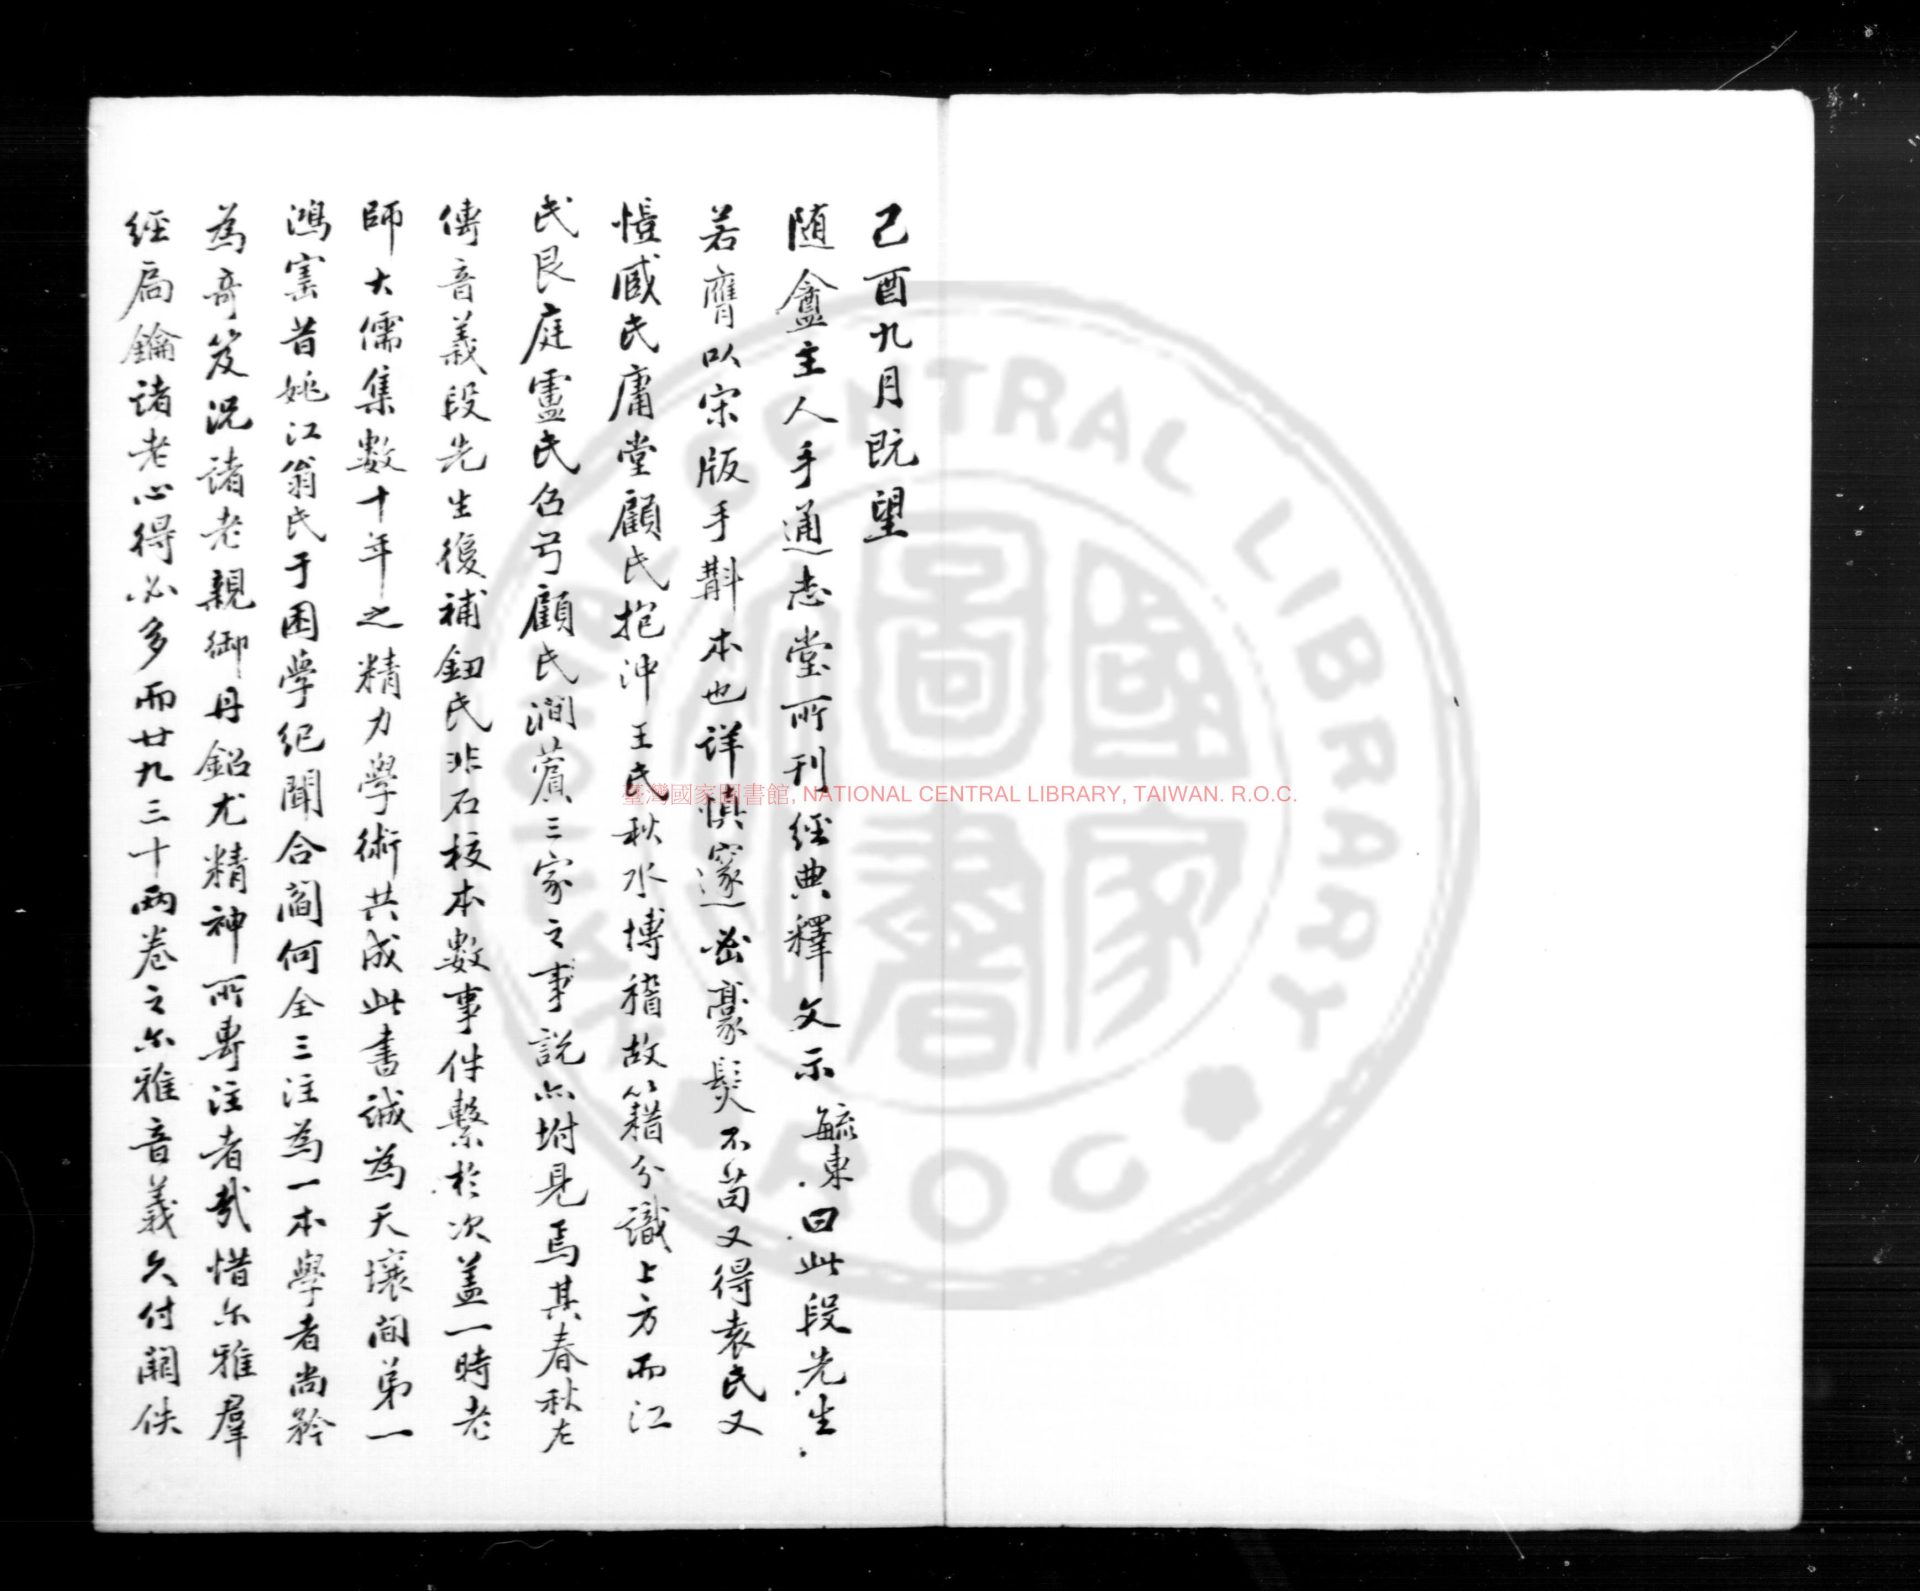 己酉九月既望
随盦主人手通志堂所刊經典釋文示毓東曰此段先生
若膺以宋版手斠本也詳慎邃密豪髮不苟又得袁氏又
愷臧氏庸堂顧氏抱沖王氏秋水博稽故籍分識上方而江
氏艮庭盧氏召弓顧氏澗薲三家之事說亦坿見焉其春秋左
傳音義段先生復補鈕氏非石校本數事件繫於次蓋一時老
師大儒集數十年之精力學術共成此書誠為天壤間弟一
鴻寶昔姚江翁氏于困學紀聞合閻何全三注為一本學者尚矜
為奇笈況諸老親御丹鉛尤精神所專注者哉惜尒雅羣
經扃鑰諸老心得必多而廿九三十兩卷之尒雅音義久付闕佚
臺灣國家圖書館, NATIONAL CENTRAL LIBRARY, TAIWAN. R.O.C.
國家圖書
NATIONAL CENTRAL LIBRARY
ROC